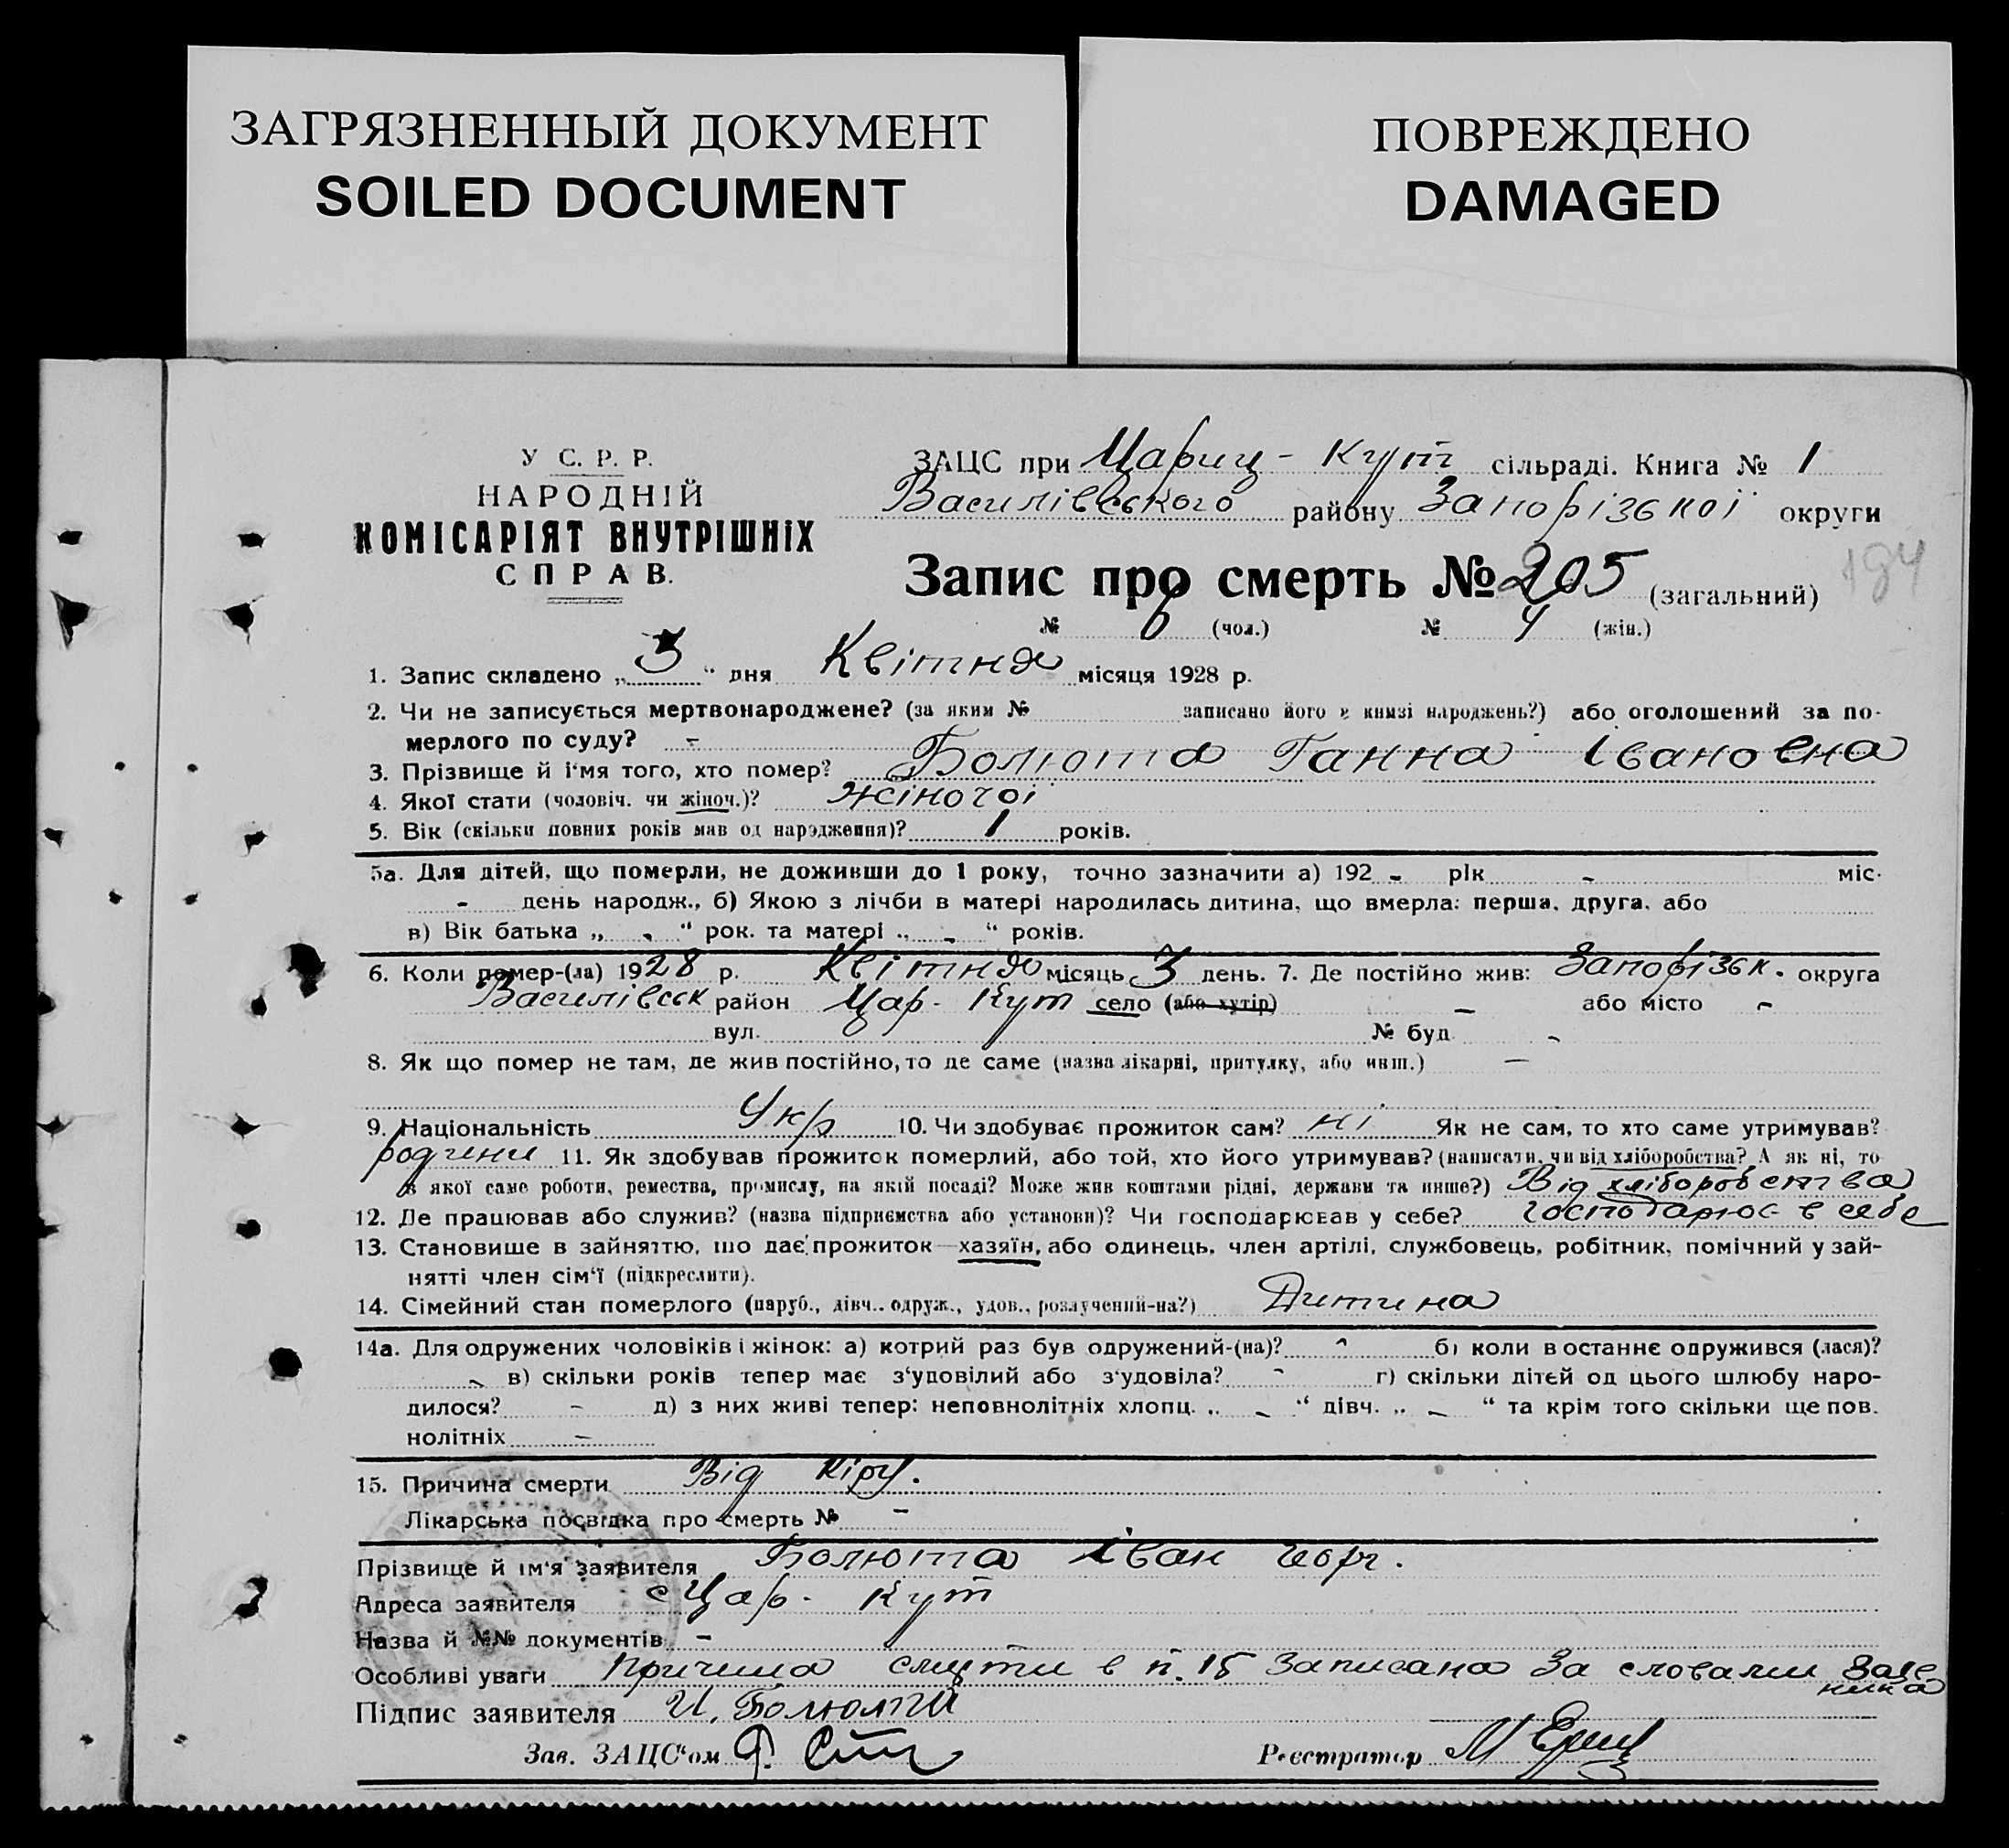 ЗАГРЯЗНЕННЫЙ ДОКУМЕНТ
SOILED DOCUMENT
ПОВРЕЖДЕНО
DAMAGED
У С. Р. Р.
НАРОДНІЙ
КОМІСАРІЯТ ВНУТРІШНІХ
СПРАВ.
ЗАЦС при Цариц - Кут сільраді. Книга № 1
Василівського району Запорізької округи
Запис про смерть № 205 (загальний) 194
№ 6 (чол.) № 4 (жін.)
1. Запис складено „ 3 “ дня Квітня місяця 1928 р.
2. Чи не записується мертвонароджене? (за яким № записано його в книзі народжень?) або оголошений за по-
мерлого по суду? -
3. Прізвище й і'мя того, хто помер? Болюта Ганна Івановна
4. Якої стати (чоловіч. чи жіноч.)? жіночої
5. Вік (скільки повних років мав од народження)? 1 років.
5а. Для дітей, що померли, не доживши до 1 року, точно зазначити а) 192 - рік - міс.
- день народж., б) Якою з лічби в матері народилась дитина, що вмерла: перша, друга, або
в) Вік батька „ - “ рок. та матері „ - “ років.
6. Коли помер-(ла) 1928 р. Квітня місяць 3 день. 7. Де постійно жив: Запорізьк. округа
Василівськ район Цар. Кут село (або хутір) - або місто -
вул. № буд. -
8. Як що помер не там, де жив постійно, то де саме (назва лікарні, притулку, або инш.) -
9. Національність Укр 10. Чи здобуває прожиток сам? ні Як не сам, то хто саме утримував?
родини 11. Як здобував прожиток померлий, або той, хто його утримував? (написати, чи від хліборобства? А як ні, то
з якої саме роботи, ремества, промислу, на якій посаді? Може жив коштами рідні, держави та инше?) Від хліборобства
12. Де працював або служив? (назва підприємства або установи)? Чи господарював у себе? господарює в себе
13. Становище в зайняттю, що дає прожиток—хазяїн, або одинець, член артілі, службовець, робітник, помічний у зай-
нятті член сім'ї (підкреслити).
14. Сімейний стан померлого (паруб., дівч., одруж., удов., розлучений-на?) Дитина
14а. Для одружених чоловіків і жінок: а) котрий раз був одружений-(на)? - б) коли востаннє одружився (лася)?
- в) скільки років тепер має з'уповілий або з'удовіла? - г) скільки дітей од цього шлюбу наро-
дилося? - д) з них живі тепер: неповнолітніх хлопц. „ - “ дівч. „ - “ та крім того скільки ще пов.
нолітніх -
15. Причина смерти Від Кіру.
Лікарська посвідка про смерть № -
Прізвище й ім'я заявителя Болюта Іван
Адреса заявителя с Цар. Кут
Назва й №№ документів -
Особливі уваги Причина смерти в п. 15 Записана За словами Заяв
ника
Підпис заявителя И. Болюта
Зав. ЗАЦС'ом
Реєстратор